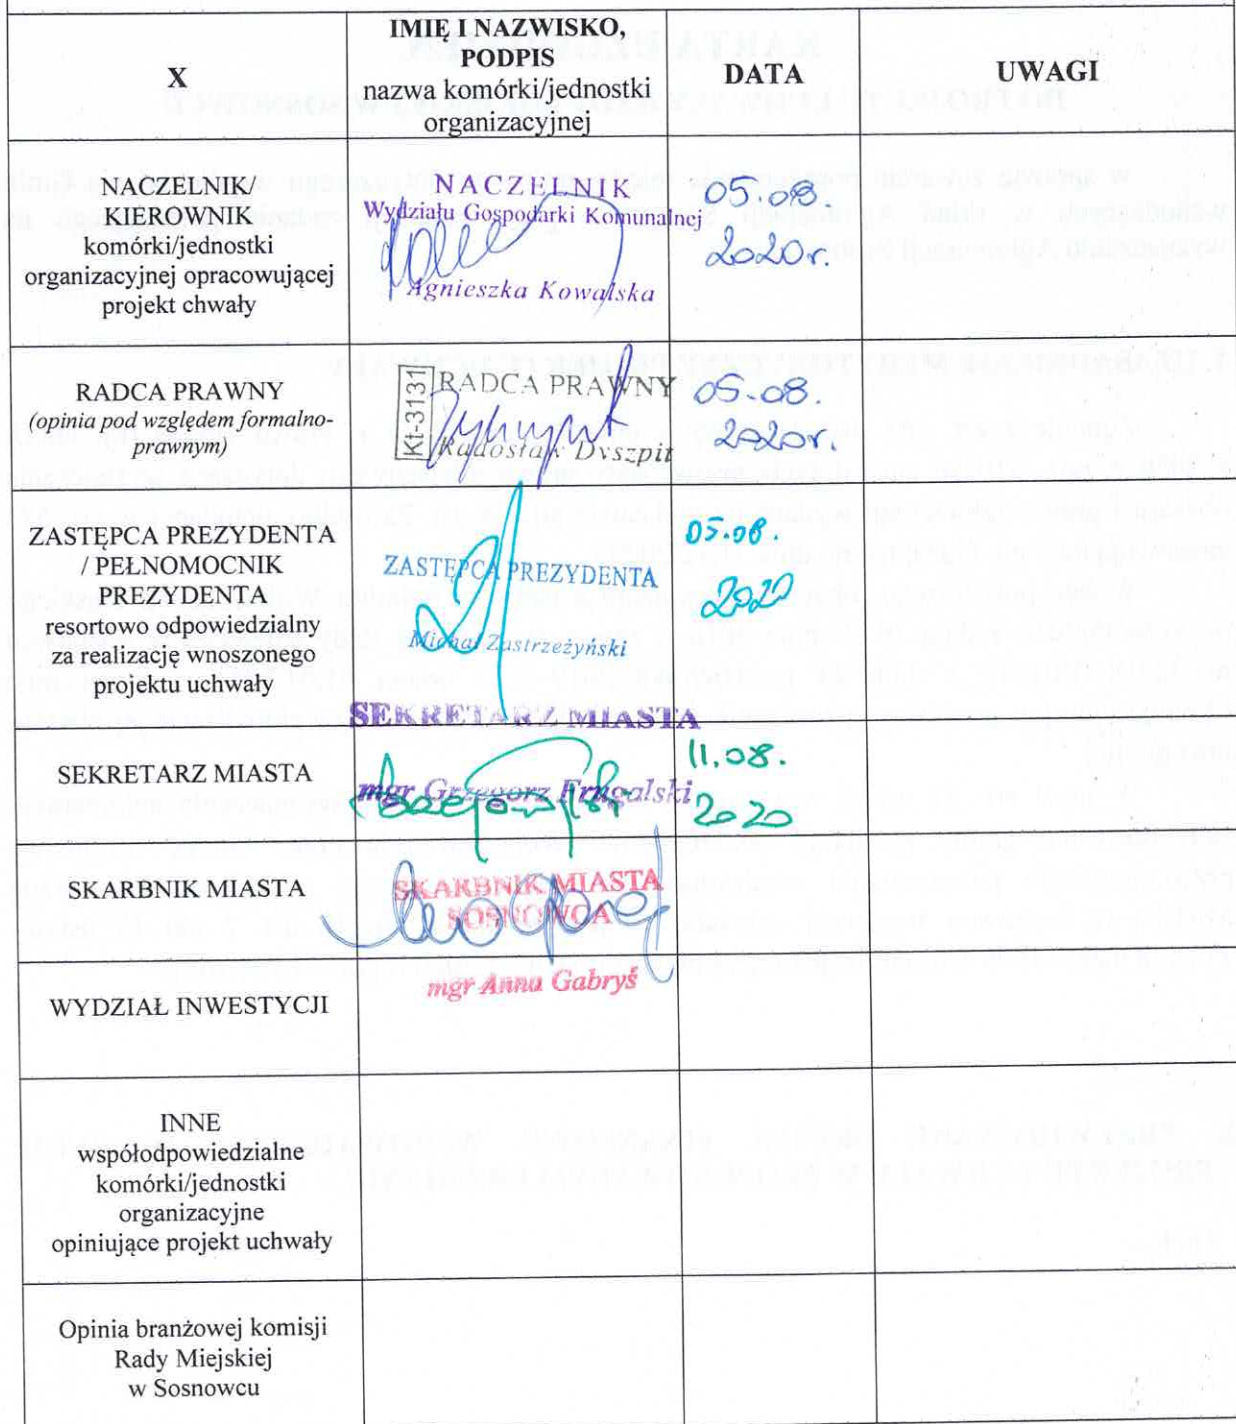 X
IMIĘ I NAZWISKO,
PODPIS
nazwa komórki/jednostki
organizacyjnej
DATA
UWAGI
NACZELNIK/
KIEROWNIK
komórki/jednostki
organizacyjnej opracowującej
projekt chwały
NACZELNIK
Wydziału Gospodarki Komunalnej
Agnieszka Kowalska
05.08.
2020r.
RADCA PRAWNY
(opinia pod względem formalno-
prawnym)
Kt-3131
RADCA PRAWNY
Radosław Dyszpit
05-08.
2020r.
ZASTĘPCA PREZYDENTA
/ PEŁNOMOCNIK
PREZYDENTA
resortowo odpowiedzialny
za realizację wnoszonego
projektu uchwały
ZASTĘPCA PREZYDENTA
Michał Zastrzeżyński
05.08.
2020
SEKRETARZ MIASTA
SEKRETARZ MIASTA
mgr Grzegorz Frugalski
11.08.
2020
SKARBNIK MIASTA
SKARBNIK MIASTA
SOSNOWCA
mgr Anna Gabryś
WYDZIAŁ INWESTYCJI
INNE
współodpowiedzialne
komórki/jednostki
organizacyjne
opiniujące projekt uchwały
Opinia branżowej komisji
Rady Miejskiej
w Sosnowcu